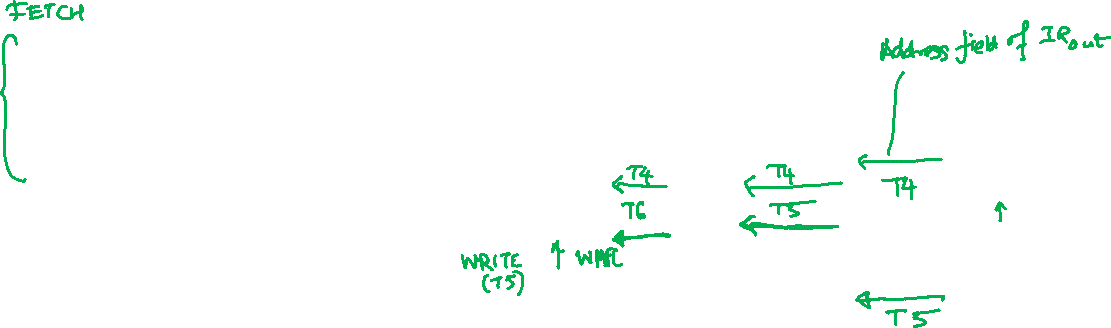 FETCH
Address field of IRout
T4
T4
T4
T6
T5
WRITE
(T5)
WMFC
T5